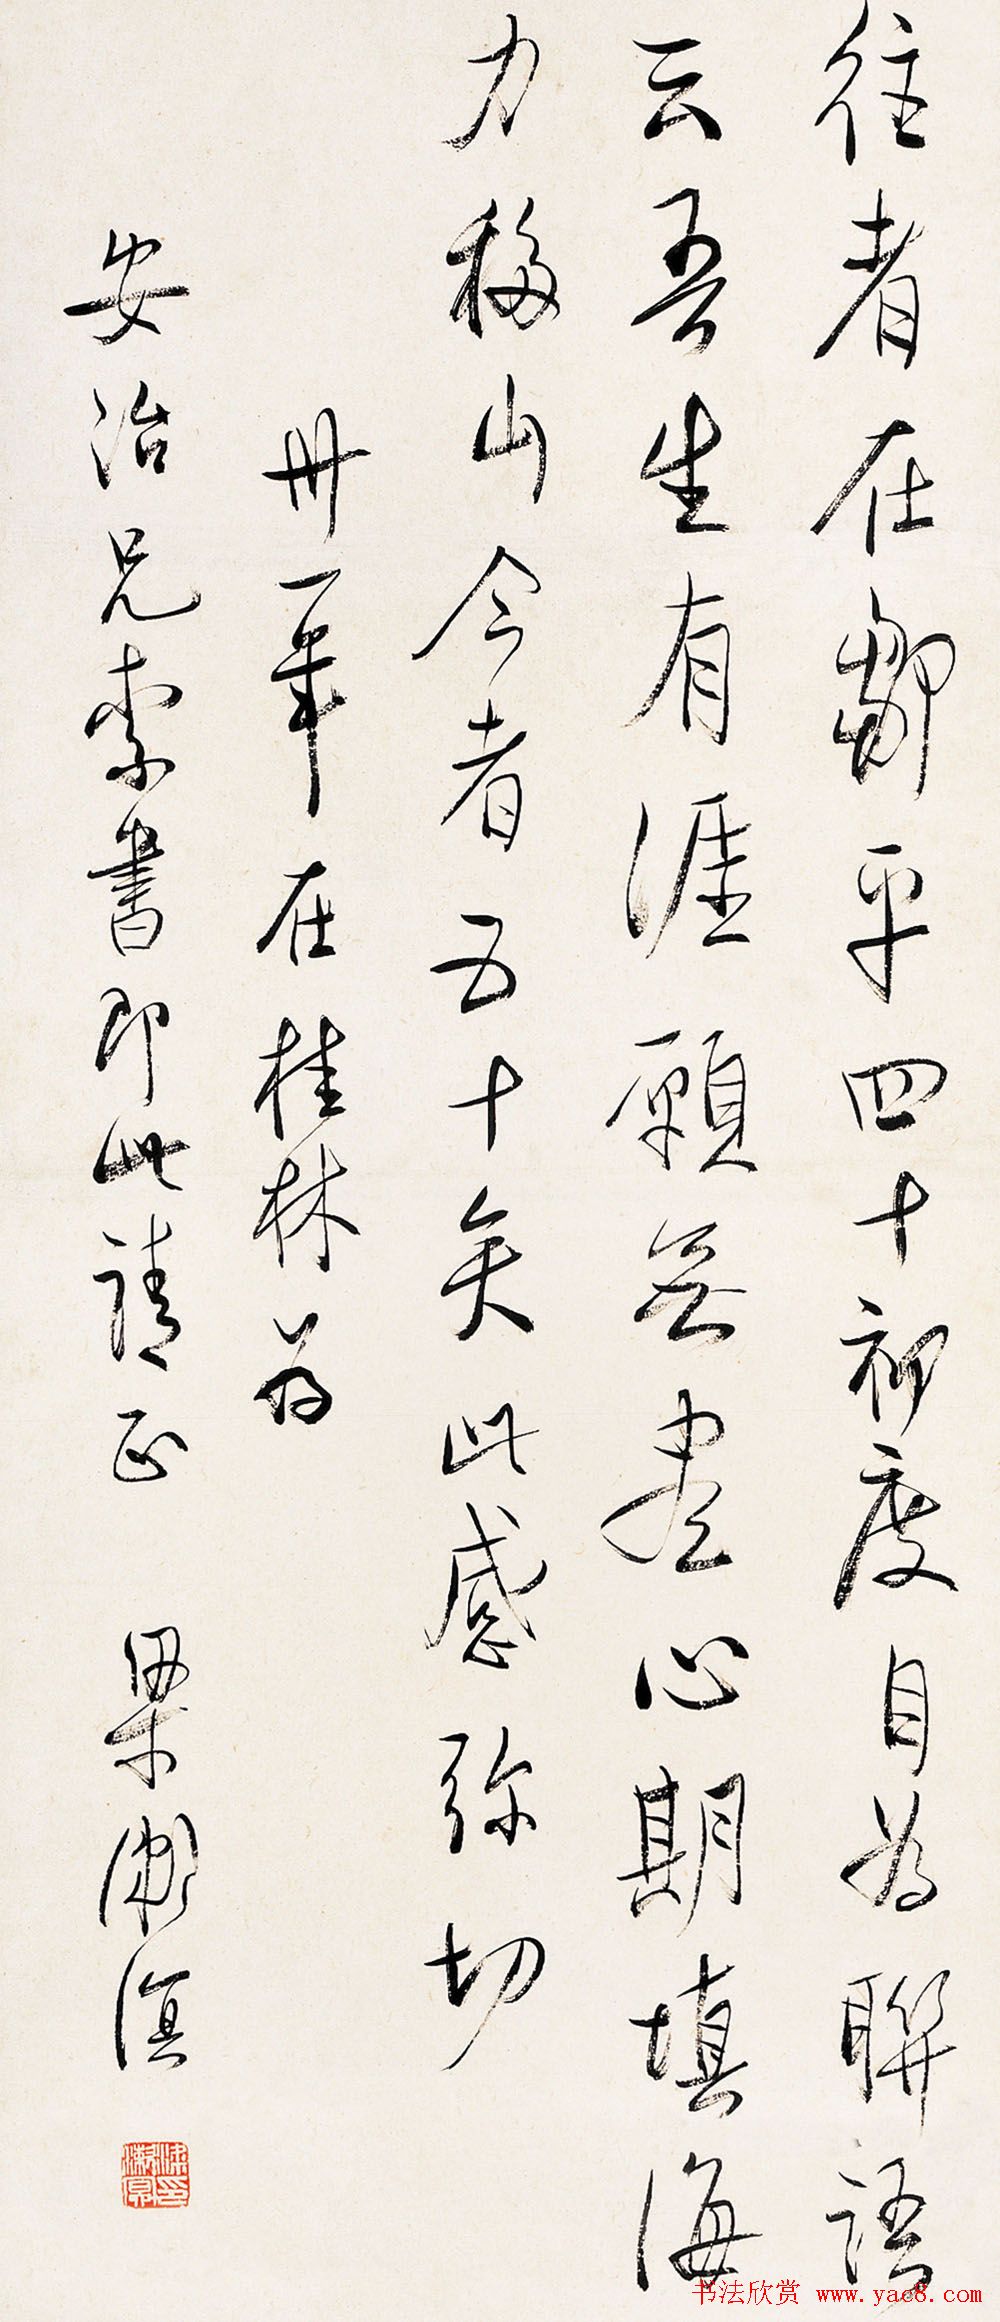 往者在鄒平四十初度自为聯語
云吾生有涯願无盡心期填海
力移山今者五十矣此感弥切
卅一年在桂林为
安治兄索書即此請正 梁漱溟
梁漱溟印
书法欣赏 www.yac8.com